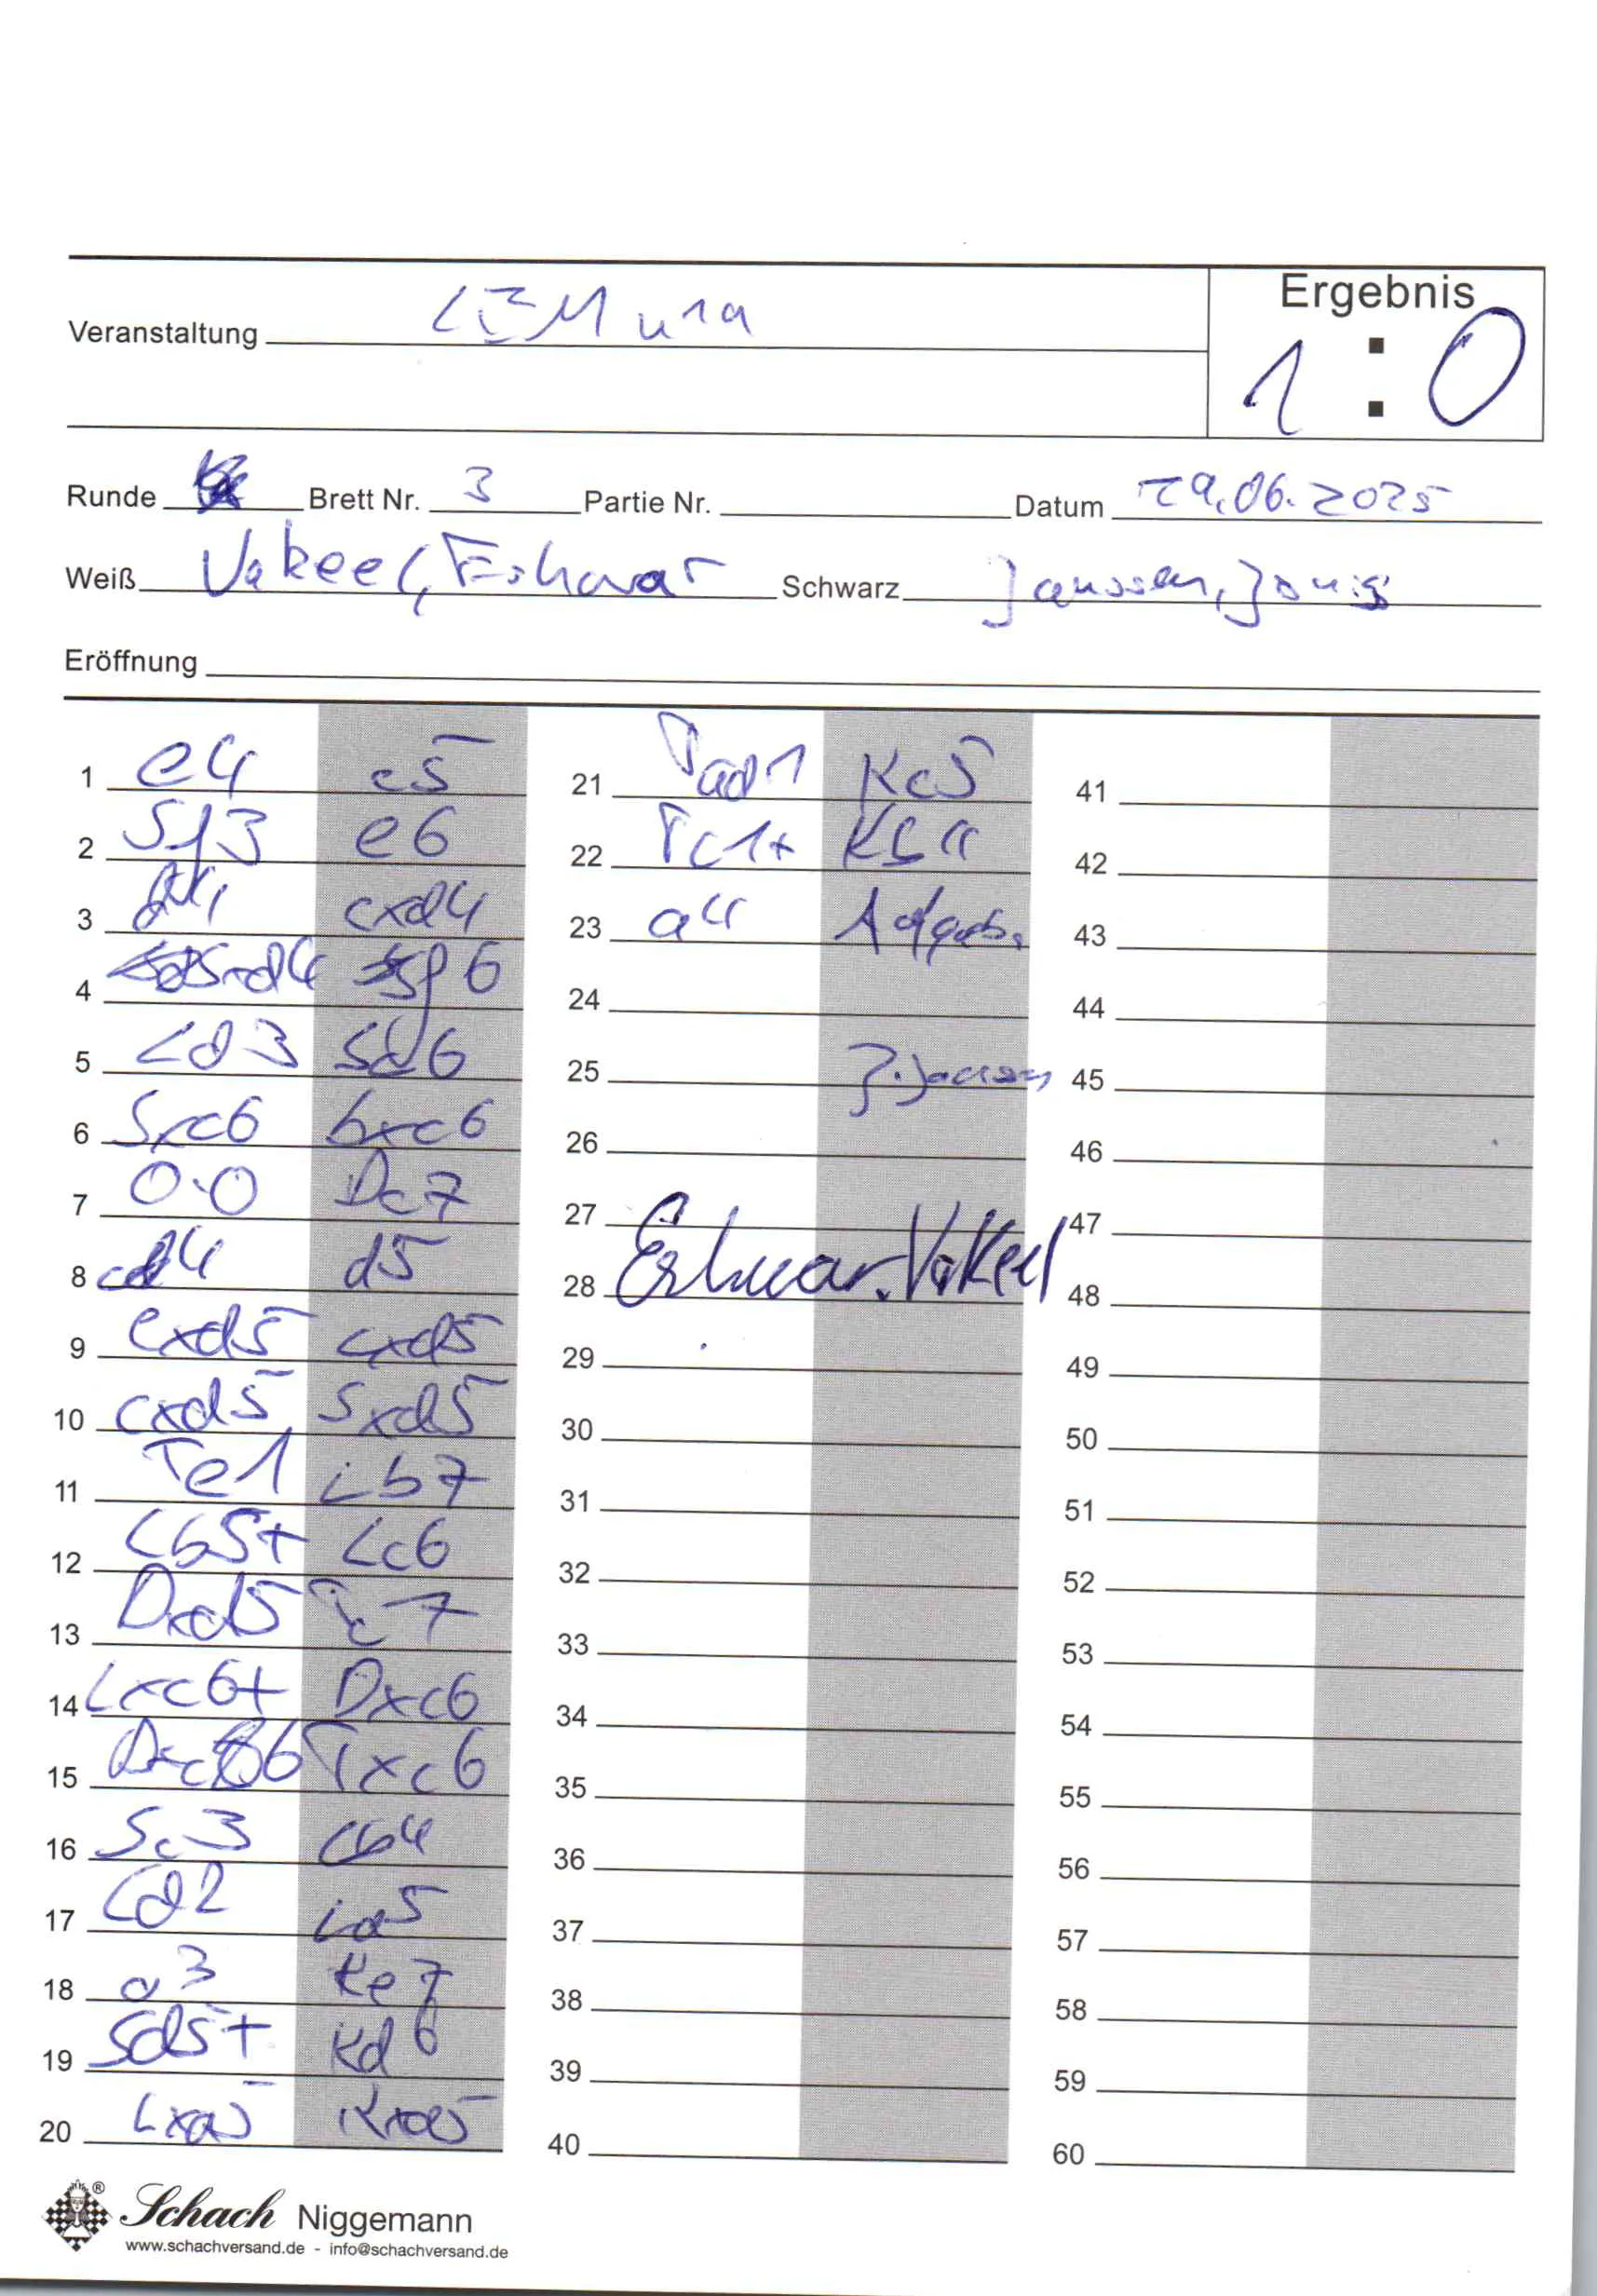 Ergebnis
Veranstaltung LEM u12
1 : 0
Runde Brett Nr. 3 Partie Nr. Datum 29.06.2025
Weiß Vakeel, Eshwar Schwarz Janssen, Jonis
Eröffnung
1 e4 c5
2 Sf3 e6
3 d4 cxd4
4 Sxd4 Sf6
5 Ld3 Sc6
6 Sxc6 bxc6
7 0-0 Dc7
8 c4 d5
9 exd5 cxd5
10 cxd5 Sxd5
11 Te1 Lb7
12 Lb5+ Lc6
13 Dxd5 Tc7
14 Lxc6+ Dxc6
15 Dxc6 Txc6
16 Sc3 Lb4
17 Ld2 La5
18 a3 Ke7
19 Sd5+ Kd6
20 Lxa5 Kxd5
21 Tad1 Kc5
22 Tc1+ Kb4
23 a4 Afgabe
24
25 J. Janssen
26
27
28 Eshwar.Vakeel
29
30
31
32
33
34
35
36
37
38
39
40
41
42
43
44
45
46
47
48
49
50
51
52
53
54
55
56
57
58
59
60
® Schach Niggemann
www.schachversand.de - info@schachversand.de